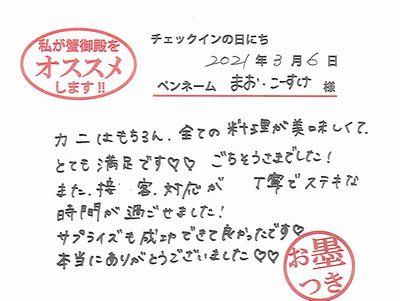 私が蟹御殿を
オススメ
します!!
チェックインの日にち
2021年3月6日
ペンネーム まお・こーすけ 様
カニはもちろん、全ての料理が美味しくて、
とても満足です♡♡ ごちそうさまでした!
また、接客、対応が 丁寧でステキな
時間が過ごせました!
サプライズも成功できて良かったです♡
本当にありがとうございました♡♡
お墨
つき